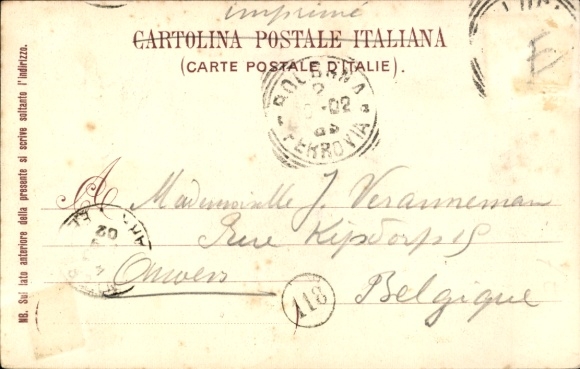 imprimé
CARTOLINA POSTALE ITALIANA
(CARTE POSTALE D'ITALIE).
E
FERROVIA
02
NB. Sul lato anteriore della presente si scrive soltanto l'indirizzo.
A Mademoiselle J. Veranneman
Rue Kipdorp 15
Anvers
Belgique
118